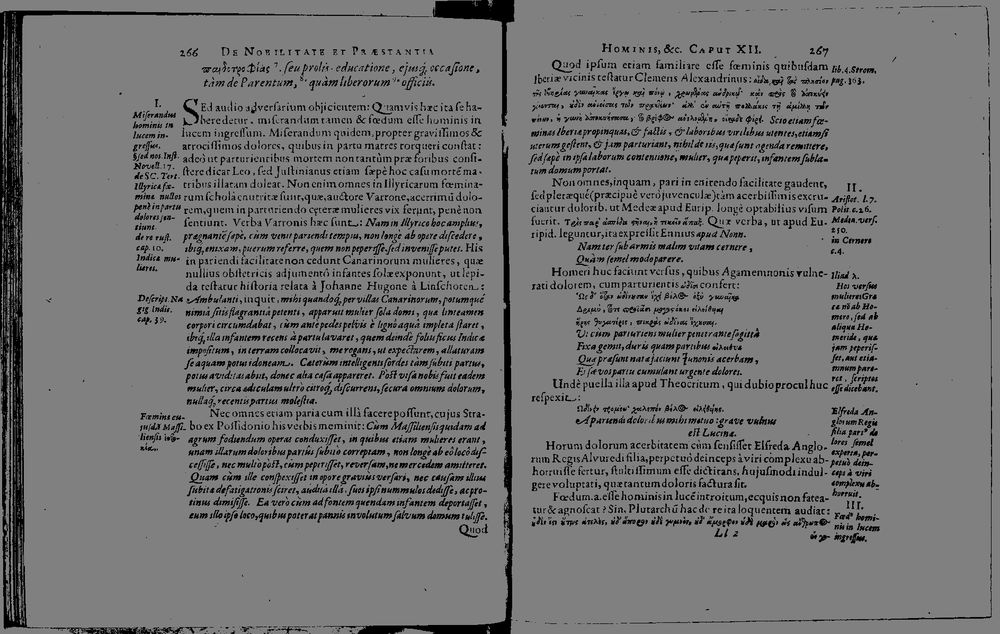 266 DE NOBILITATE ET PRÆSTANTIA
seu prolis educatione, ejusq́ occasione,
tàm de Parentum, quàm liberorum officiis.
I.
Miserandus
hominis in
lucem in-
gressus.
§ sed nos. Inst.
Novell. 17.
de SC. Tert.
Illyrica fœ-
minæ nullos
penè in partu
dolores sen-
tiunt.
de re rust.
cap. 10.
Indicæ mu-
lieres.
Descript. Na
gig Indic.
cap. 39.
SEd audio adversarium objicientem: Quamvis hæc ita se ha-
bere detur, miserandum tamen & fœdum esse hominis in
lucem ingressum. Miserandum quidem, propter gravissimos &
atrocissimos dolores, quibus in partu matres torqueri constat:
adeò ut parturientibus mortem non tantùm præ foribus consi-
stere dicat Leo, sed Justinianus etiam sæpè hoc casu mortē ma-
tribus illatam doleat. Non enim omnes in Illyricarum fœmina-
rum scholâ enutritæ sunt, quæ, auctore Varrone, acerrimū dolo-
rem, quem in parturiendo ceteræ mulieres vix ferunt, penè non
sentiunt. Verba Varronis hæc sunt: Nam in Illyrico hoc amplius,
prægnantē sæpè, cùm venit pariendi tempus, non longè ab opere discedere,
ibiq́, enixam, puerum referre, quem non peperisse, sed invenisse putes. His
in pariendi facilitate non cedunt Canarinorum mulieres, quæ
nullius obstetricis adjumentō infantes solæ exponunt, ut lepi-
da testatur historia relata à Johanne Hugone à Linschoten:
Ambulanti, inquit, mihi quandoq́, per villas Canarinorum, potumque
nimiâ sitis flagrantiâ petenti, apparuit mulier sola domi, quæ linteamen
corpori circumdabat, cùm ante pedes pelvis è lignō aquâ impleta staret,
ibiq́, illa infantem recens à partu lavaret, quem deindè foliis ficus Indicæ
impositum, in terram collocavit, me rogans, ut expectarem, allaturam
se aquam potui idoneam. Cæterùm intelligens sordes tàm subitis partus,
potus aviditas abiit, donec alia casa appareret. Post visa nobis fuit eadem
mulier, circa ædiculam ultrò citroq́, discurrens, secura omnium dolorum,
nullaq́, recentis partus molestia.
Fœminæ cu-
jusdā Massi-
liensis
Nec omnes etiam paria cum illâ facere possunt, cujus Stra-
bo ex Possidonio his verbis meminit: Cum Massiliensis quidam ad
agrum fodiendum operas conduxisset, in quibus etiam mulieres erant,
unam illarum doloribus pariùs subitò correptam, non longè ab eò locò dis-
cessisse, nec multò pòst, cùm peperisset, reversam, ne mercedem amitteret.
Quam cùm ille conspexisset in opere gravius versari, nec causam illius
subitæ defatigationis sciret, auditâ illâ, suos ipsi nummulos dedisse, ac pro-
tinus dimisisse. Ea verò cùm ad fontem quendam infantem deportasset,
eum illo ipso loco, quibus poterat pannis involutum salvum domum tulisse.
Quod
HOMINIS, &c. CAPUT XII. 267
Quod ipsum etiam familiare esse fœminis quibusdam
Iberiæ vicinis testatur Clemens Alexandrinus:
Scio etiam fœ-
minas Iberiæ propinquas, & factis, & laboribus virilibus utentes, etiamsi
uterum gestent, & jam parturiant, nihil de iis, quæ sunt agenda remittere,
sed sæpè in ipsâ laborum contentione, mulier, quæ peperit, infantem subla-
tum domum portat.
lib. 4. Strom.
pag. 363.
Non omnes, inquam, pari in enitendo facilitate gaudent,
sed pleræque (præcipuè verò juvenculæ) tàm acerbissimis excru-
ciantur doloribus. ut Medeæ apud Eurip. longè optabilius visum
fuerit. Quæ verba, ut apud Eu-
ripid. leguntur, ita expressit Ennius apud Nonn.
Nam ter sub armis malim vitam cernere,
Quàm semel modo parere.
II.
Aristot. l. 7.
Polit. c. 16.
Medea. vers.
250.
in Cernere
c. 4.
Homeri huc faciunt versus, quibus Agamemnonis vulne-
rati dolorem, cum parturientis confert:
Ut cùm parturiens mulier penetrante sagittâ
Fixa gemit, duris quam partubus
Quæ præsunt natæ faciunt Junonis acerbam,
Et sævos partu cumulant urgente dolores.
Iliad λ.
Hos versus
mulieres Græ
cæ nō ab Ho-
mero, sed ab
aliqua Ho-
meride, quæ
jam peperis-
set, aut etiā-
mnum pare-
ret, scriptos
esse dicebant.
Undè puella illa apud Theocritum, qui dubio procul huc
respexit:
A pariendi doloribus mihi metuo: grave vulnus
est Lucinæ.
Horum dolorum acerbitatem cùm sensisset Elfreda Anglo-
rum Regis Alvredi filia, perpetuò deinceps à viri complexu ab-
horruisse fertur, stultissimum esse dictitans, hujusmodi indul-
gere voluptati, quæ tantum doloris factura sit.
Elfreda An-
glorum Regis
filia partûs do
lores semel
experta, per-
petuò dein-
ceps à viri
complexu ab-
horruit.
Fœdum. a. esse hominis in lucē introitum, ecquis non fatea-
tur & agnoscat? Sin, Plutarchū hac de re ita loquentem audiat:
III.
Fœdꝰ homi-
nis in lucem
ingressus.
Ll 2